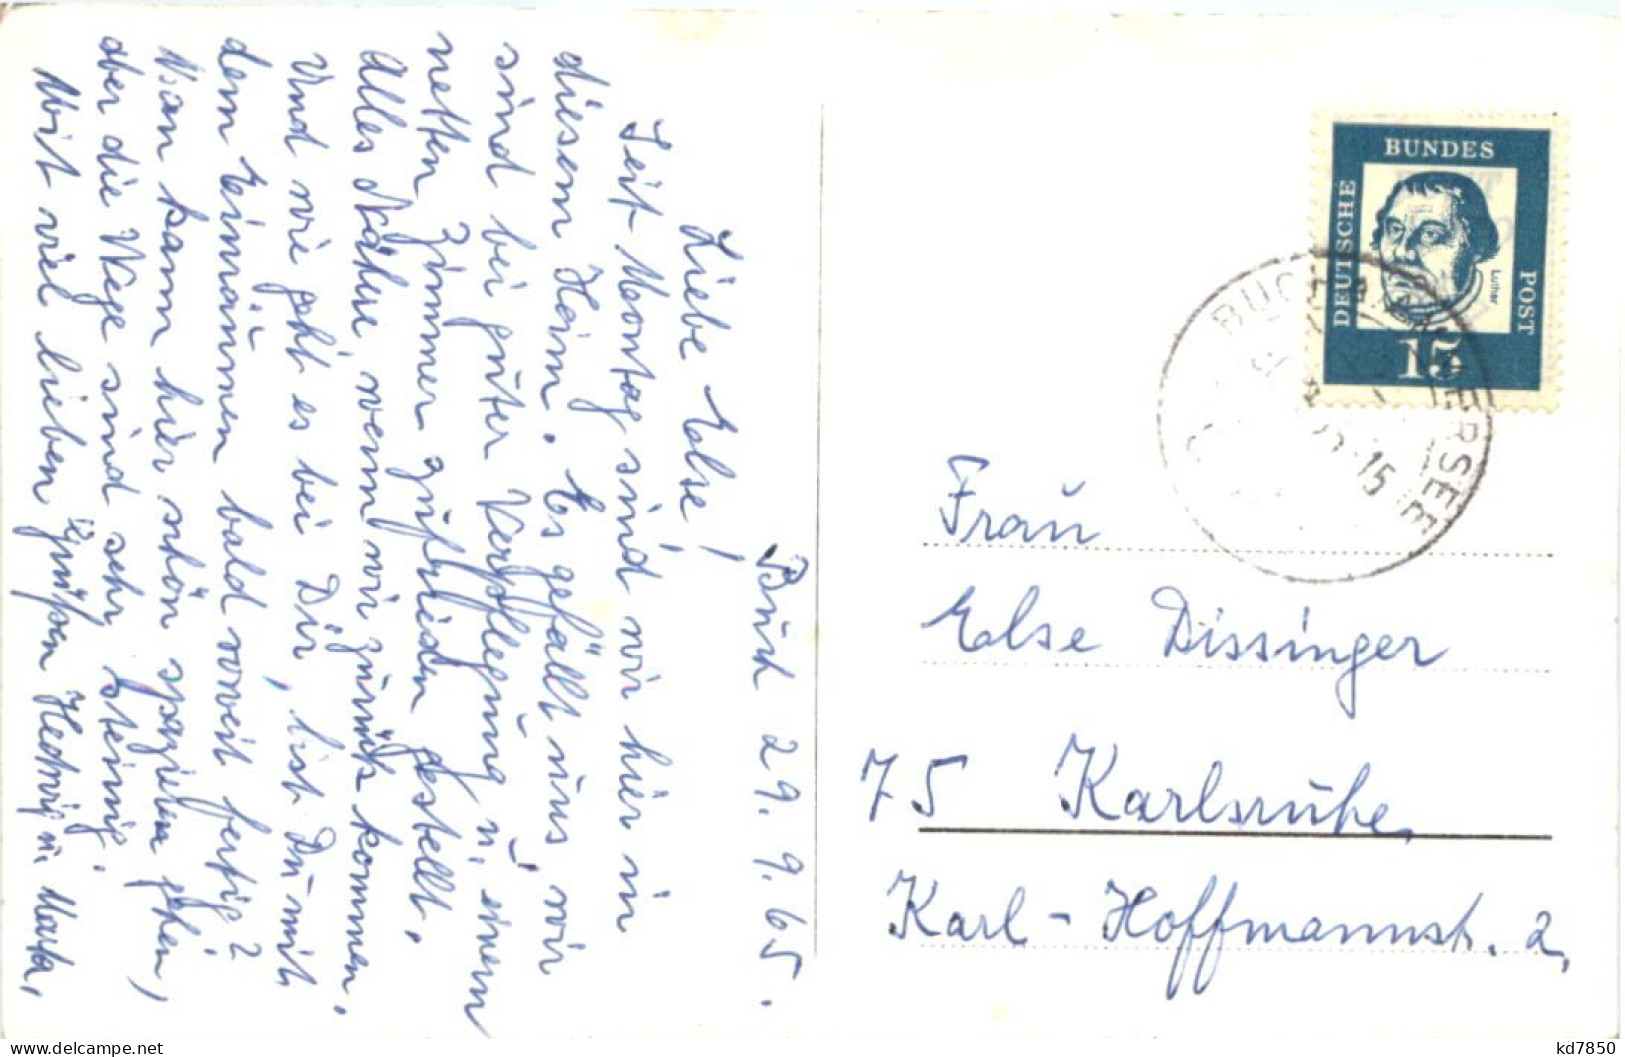 Buch 29.9.65.
Liebe Else!
Seit Montag sind wir hier in
diesem Heim. Es gefällt uns, wir
sind bei guter Verpflegung u. einem
netten Zimmer zufrieden gestellt.
Alles Nähere, wenn wir zurück kommen.
Und wie geht es bei Dir, bist Du mit
dem Einräumen bald soweit fertig?
Man kann hier schön spazieren gehen,
aber die Wege sind sehr steinig.
Mit viel lieben Grüßen Hedwig u. Marta.
DEUTSCHE BUNDES POST
Luther
15
BUCH
AMMERSEE
-15
Frau
Else Dissinger
75 Karlsruhe,
Karl-Hoffmannstr. 2,
delcampe.net
kd7850